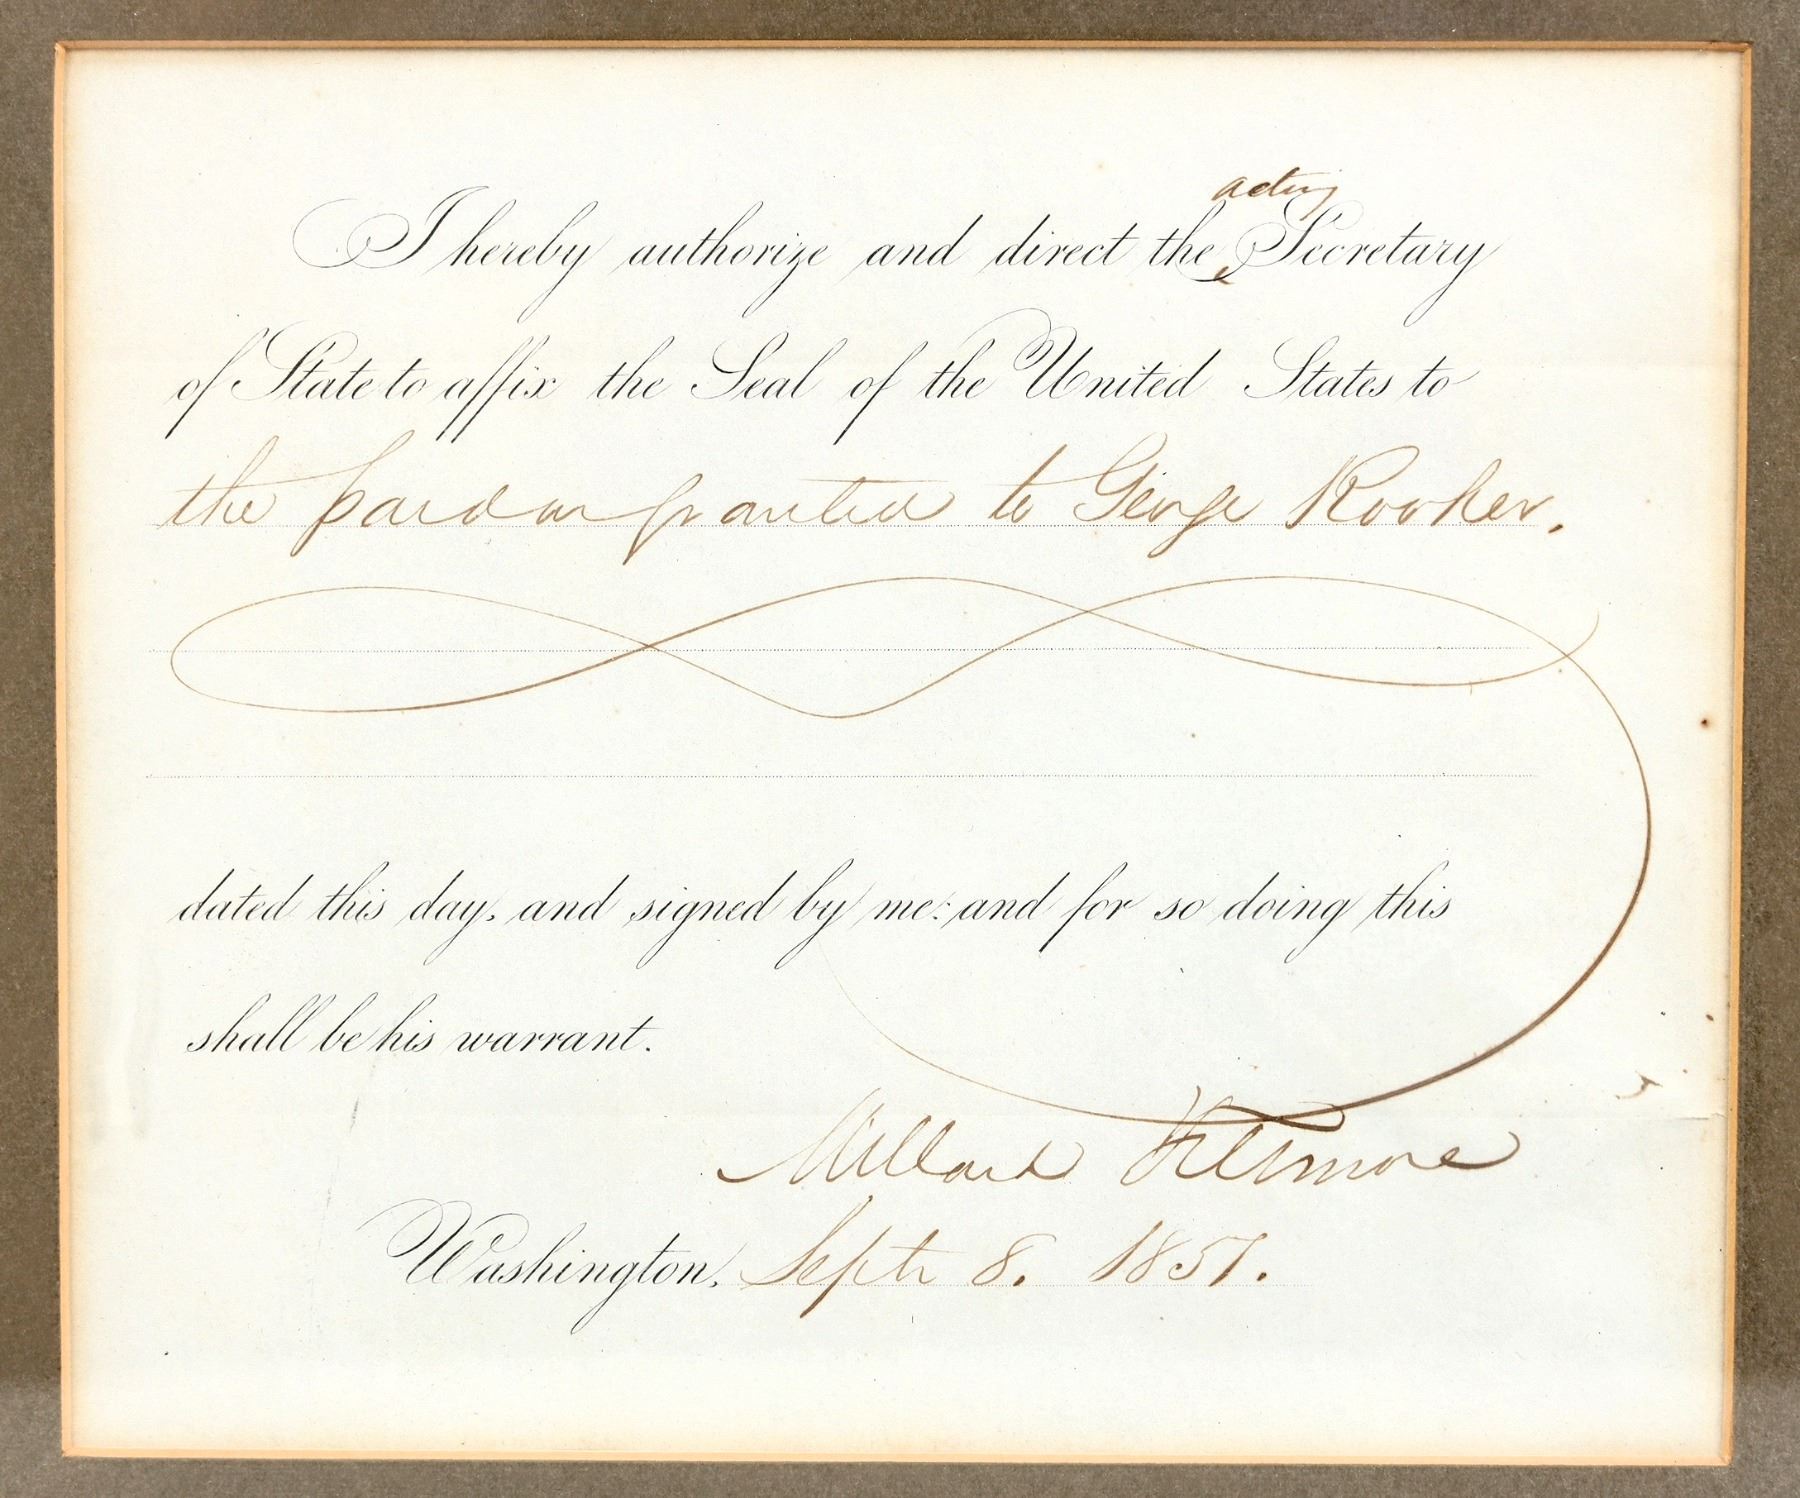 acting
I hereby authorize and direct the Secretary
of State to affix the Seal of the United States to
the pardon granted to George Rooker.
dated this day, and signed by me: and for so doing this
shall be his warrant.
Millard Fillmore
Washington, Septr 8. 1851.